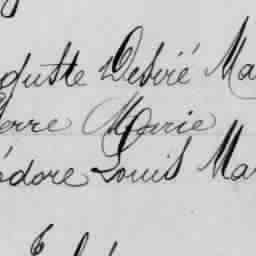 guste Desiré Ma
erre Marie
éodore Louis Mar